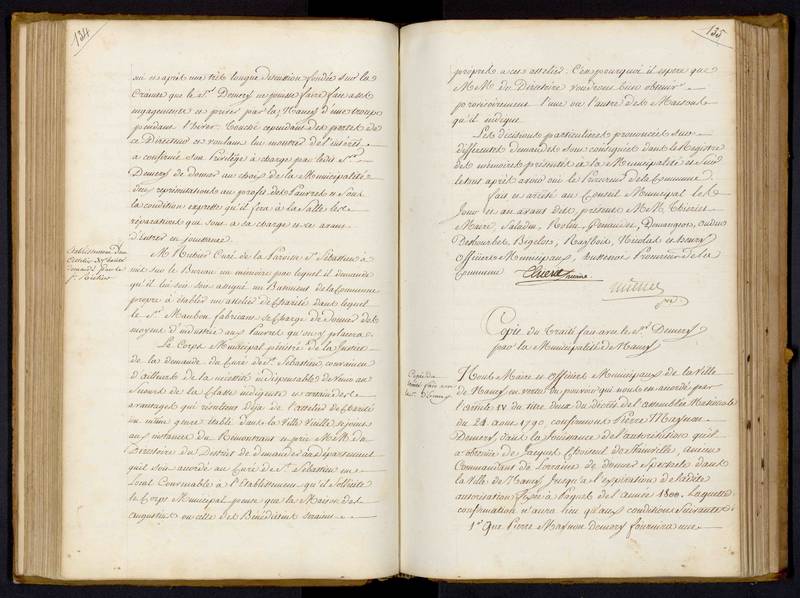 134
ou et après une très longue discussion fondée sur la
Crainte que le Sr. Demery ne puisse faire face à ses
engagements et priver par la Nancy d'une troupe
pendant l'hiver. Touché cependant des pertes de
ce Directeur et voulant lui montrer de l'intérêt
a confirmé son Privilège à charge par ledit Sr.
Demery de donner au choix de la Municipalité
des représentations au profit des Pauvres et sous
la condition expresse qu'il fera à la Salle les
réparations qui sont à sa charge et ce avant
d'entrer en jouissance.
Etablissement d'un
Attelier de charité
demandé par le
M. Curé de la Paroisse St. Sébastien a
mis sur le Bureau un mémoire par lequel il demande
qu'il lui soit assigné un Batiment de la Commune
propre à établir un attelier de Charité dans lequel
le Sr. Maubon fabricant se charge de donner des
moyens d'industrie aux Pauvres qu'on y placera.
Le Corps Municipal pénétré de la Justice
de la demande du Curé de St. Sébastien convaincu
d'ailleurs de la nécessité indispensable de venir au
Secours de la Classe indigente et des
avantages qui résultent déja de l'attelier de Charité
du même genre établi dans la Ville Vieille se joint
aux instances du Remontrant et prie MM. du
Directoire du District de demander au département
qu'il soit accordé au Curé de St. Sébastien un
Local Convenable à l'Etablissement qu'il sollicite
le Corps Municipal pense que la Maison des
Augustins ou celle des Bénédictins seraient
135
propres à ces atteliers. C'est pourquoi il espère que
MM. du Directoire voudront bien obtenir
provisoirement l'une ou l'autre des Maisons
qu'il indique
Les décisions particulières prononcées sur
différentes demandes sont consignées dans le Registre
des mémoires présentés à la Municipalité et
le tout après avoir ouï le Procureur de la Commune
fait et arrêté au Conseil Municipal les
Jour et an avant dits, présents MM. Thieriet
Maire, Saladin, Rolin,
Bigelot, Nicolas et
Officiers Municipaux, Procureur de la
Commune
maire
Copie du Traité fait avec le Sr. Demery
par la Municipalité de Nancy
Copie du
traité fait avec
le Sr. Demery
Nous Maire et Officiers Municipaux de la Ville
de Nancy en vertu du pouvoir qui nous est accordé par
l'article IV du titre deux du décret de l'assemblée Nationale
du 24 aout 1790 confirmons Pierre Maynon
Demery dans la Jouissance de l'autorisation qu'il
a obtenue de Jacques Choiseul de Stainville, ancien
Commandant de Lorraine de donner Spectacle dans
la Ville de Nancy Jusqu'à l'expiration de ladite
autorisation fixée à Paques de l'année 1800. laquelle
confirmation n'aura lieu qu'aux conditions Suivantes.
1°. Que Pierre Maynon demery fournira une